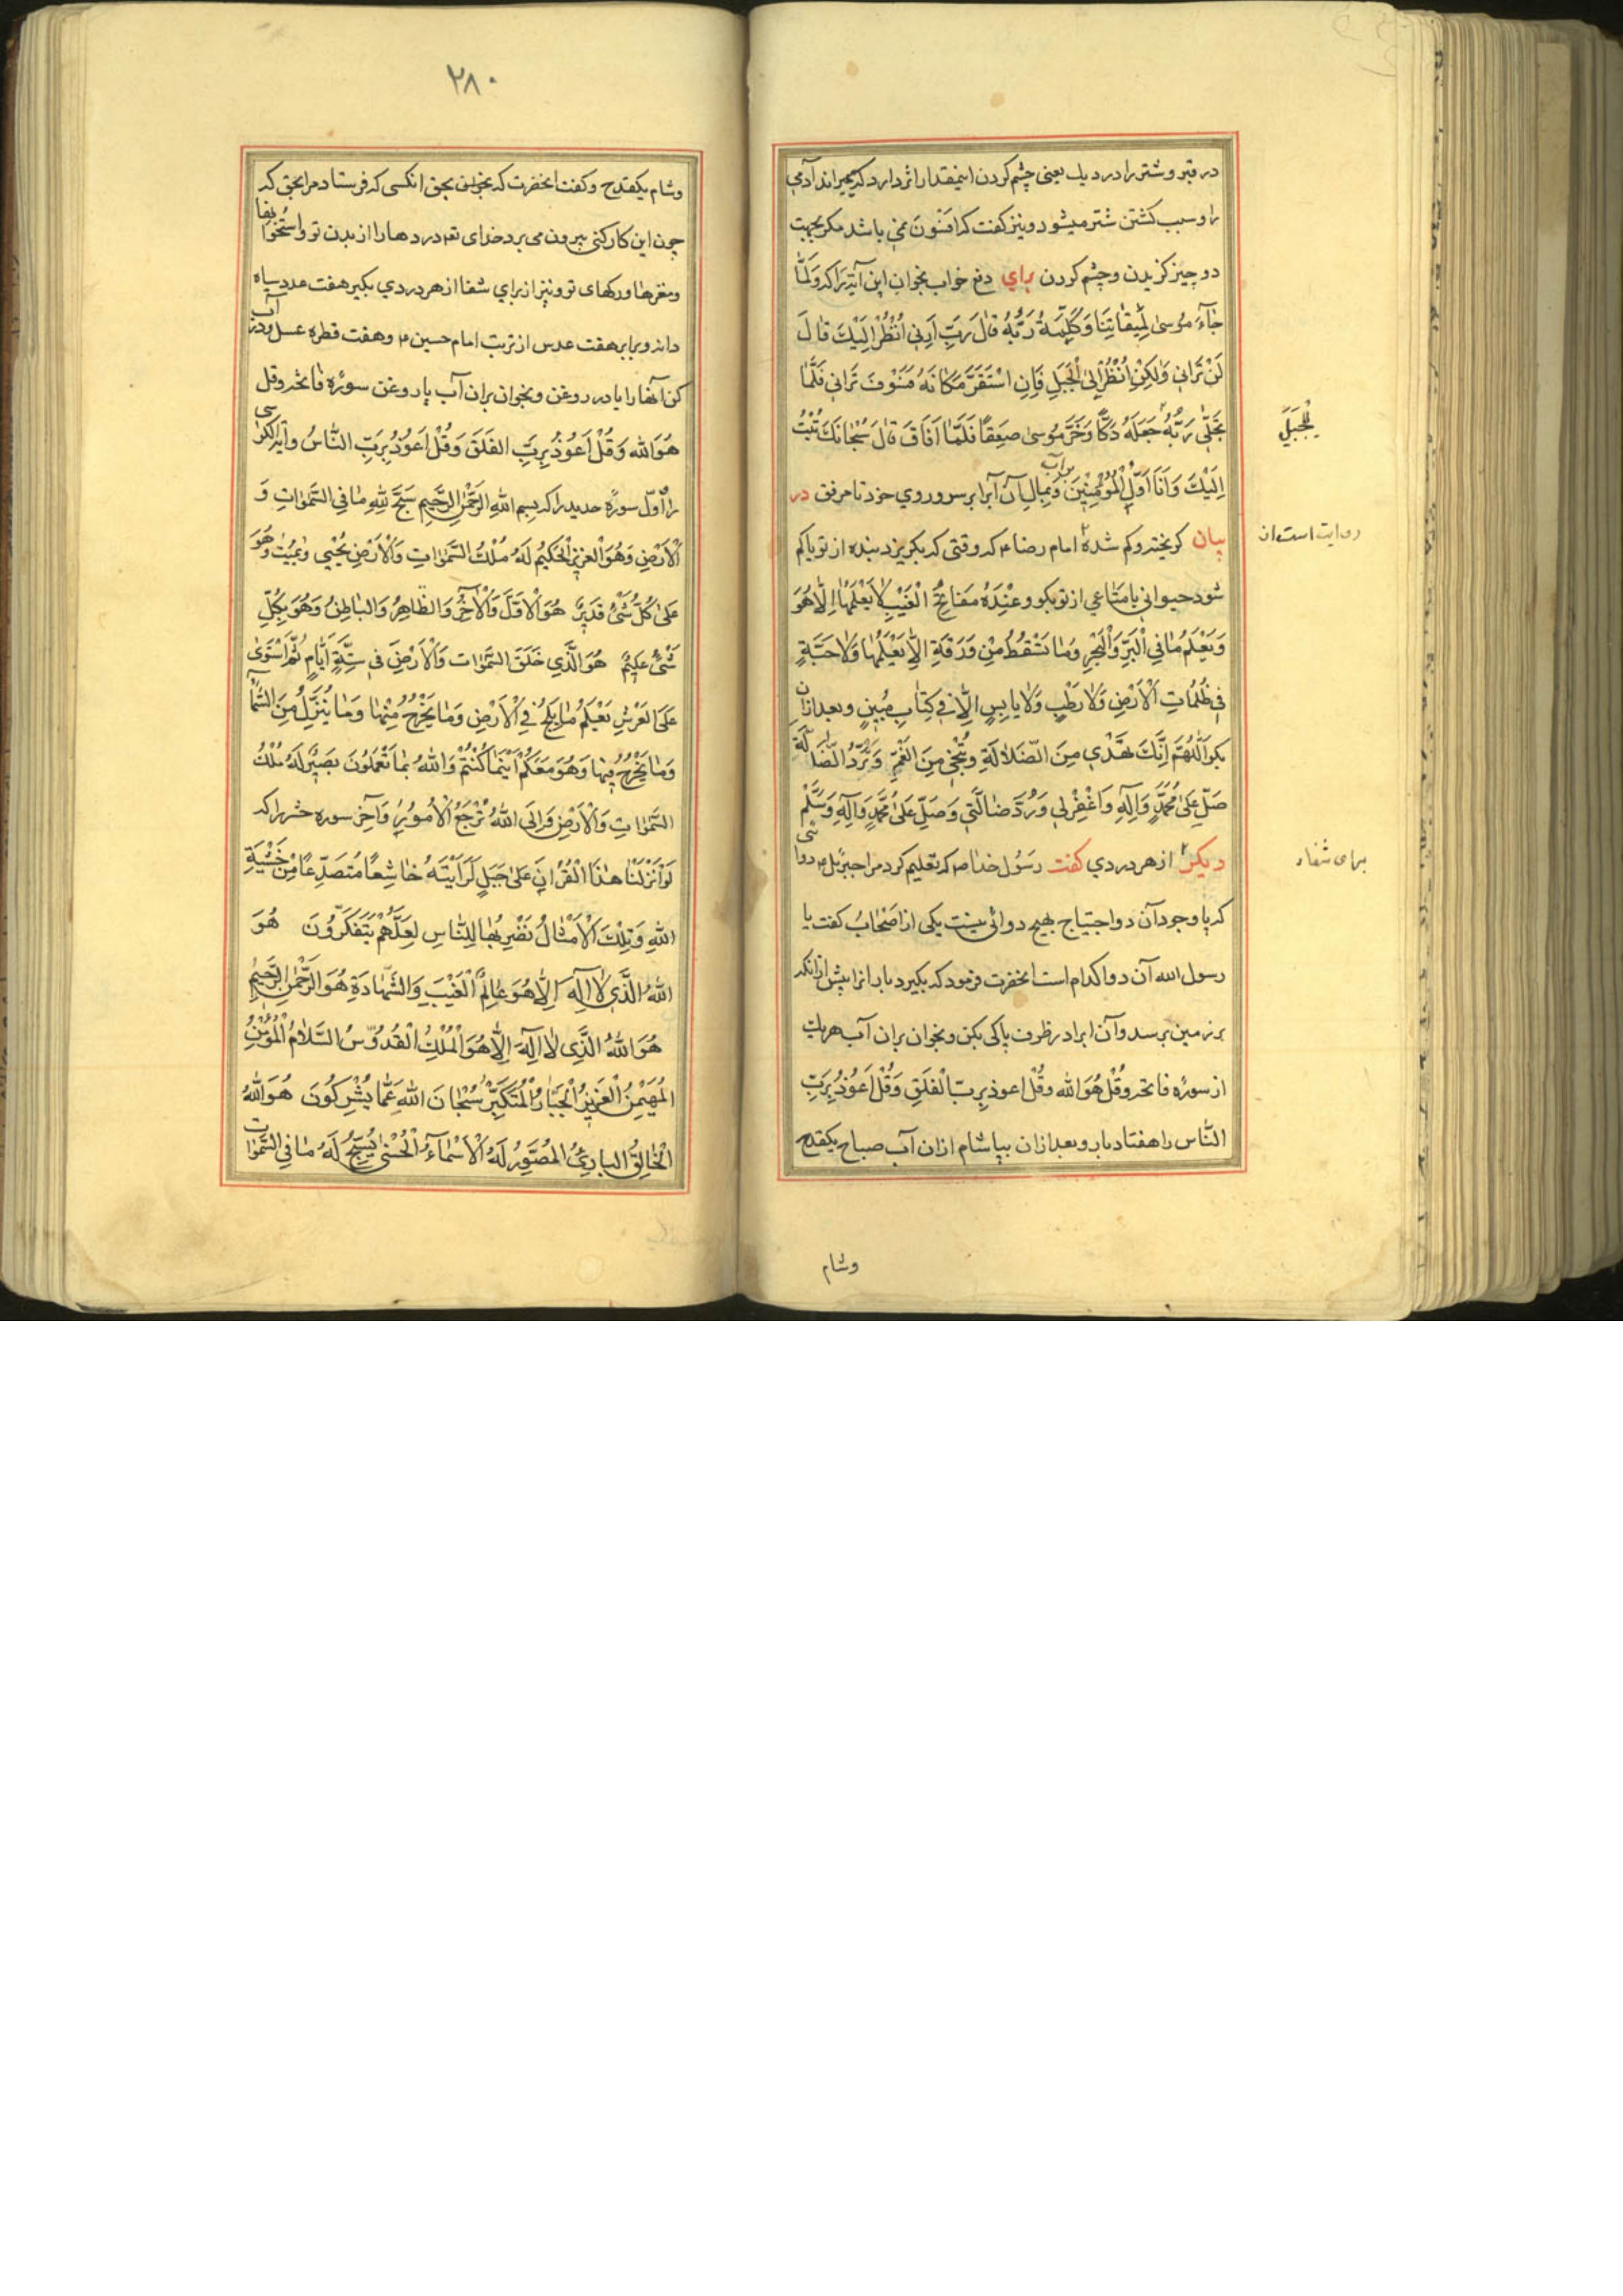 در قبر و شتر را در دیك یعنی چشم کردن اینمقدار اثر دارد که میمیراند آدمی
را و سبب کشتن شتر میشود و نیز کفت که افسون نمی باشد مکر بجهت
دو چیز کزیدن و چشم کردن برای دفع خواب بخوان این آیه را که وَلَمّٰا
جٰآءَ مُوسیٰ لِمِیقٰاتِنٰا وَکَلَّمَهُ رَبُّهُ قٰالَ رَبِّ اَرِنِی اَنْظُرْ اِلَیْكَ قٰالَ
لَنْ تَرٰانِی وَلٰکِنِ انْظُرْ اِلَی الْجَبَلِ فَاِنِ اسْتَقَرَّ مَکٰانَهُ فَسَوْفَ تَرٰانِی فَلَمّٰا
تَجَلّٰی رَبُّهُ جَعَلَهُ دَکّاً وَخَرَّ مُوسیٰ صَعِقاً فَلَمّٰا اَفٰاقَ قٰالَ سُبْحٰانَكَ تُبْتُ
لِلْجَبَلِ
اِلَیْكَ وَاَنَا اَوَّلُ الْمُؤْمِنِینَ وبمال آن آبرا بر سر و روی خود تا مرفق در
بر آب
بیان کریخته و کم شده امام رضا ع که وقتی که بکریزد بنده از تو یا کم
روایت است از
شود حیوانی یا متاعی از تو بکو وَعِنْدَهُ مَفٰاتِحُ الْغَیْبِ لٰا یَعْلَمُهٰا اِلّٰا هُوَ
وَیَعْلَمُ مٰا فِی الْبَرِّ وَالْبَحْرِ وَمٰا تَسْقُطُ مِنْ وَرَقَةٍ اِلّٰا یَعْلَمُهٰا وَلٰا حَبَّةٍ
فِی ظُلُمٰاتِ الْاَرْضِ وَلٰا رَطْبٍ وَلٰا یٰابِسٍ اِلّٰا فِی کِتٰابٍ مُبِینٍ و بعد ازان
بکو اَللّٰهُمَّ اِنَّكَ تَهْدِی مِنَ الضَّلٰالَةِ وَتُنْجِی مِنَ الْغَمِّ وَتَرُدُّ الضّٰالَّةَ
صَلِّ عَلیٰ مُحَمَّدٍ وَآلِهِ وَاغْفِرْ لِی وَرُدَّ ضٰالَّتِی وَصَلِّ عَلیٰ مُحَمَّدٍ وَآلِهِ وَسَلَّمْ
دیکر از هر دردی کفت رسول خدا ص که تعلیم کرد مرا جبرئیل ع دوائی
برای شفاء
که با وجود آن دوا احتیاج بهیچ دوائی نیست یکی از اصحاب کفت یا
رسول الله آن دوا کدام است انحضرت فرمود که بکیرد بارانرا پیش ازانکه
بر زمین برسد و آن ابرا در ظرف پاکی بکن و بخوان بران آب هر یك
از سوره فاتحه و قُلْ هُوَ الله و قُلْ اعوذ بِرَبِّ الْفَلَقِ وَقُلْ اَعُوذُ بِرَبِّ
النّاس را هفتاد بار و بعد ازان بیاشام ازان آب صباح یکقدح
وشام
۲۸۰
وشام یکقدح و کفت انحضرت که بحق انکسی که فرستاد مرا بحق که
چون این کار کنی بیرون می برد خدای تع دردها را از بدن تو و استخوانها
و مغزها و رکهای تو و نیز از برای شفا از هر دردی بکیر هفت عدد سیاه
دانه و برابر هفت عدس از تربت امام حسین ع و هفت قطره عسل و در آب
کن آنها را یا در روغن و بخوان بران آب یا روغن سوره فاتحه و قل
هُوَ الله وَ قُلْ اَعُوذُ بِرَبِّ الفَلَقَ وَ قُلْ اَعُوذُ بِرَبِّ النّٰاسُ و آیة الکرسی
را و اول سوره حدید را که بسم اللهِ الرَّحْمٰنِ الرَّحِیمِ سَبَّحَ لِلّٰهِ مٰا فِی السَّمٰوٰاتِ وَ
اَلْاَرْضِ وَهُوَ الْعَزِیزُ الْحَکِیمُ لَهُ مُلْكُ السَّمٰوٰاتِ وَالْاَرْضِ یُحْیِی وَیُمِیتُ وَهُوَ
عَلیٰ کُلِّ شَیْءٍ قَدِیرٌ هُوَ الْاَوَّلُ وَالْآخِرُ وَالظّٰاهِرُ وَالبٰاطِنُ وَهُوَ بِکُلِّ
شَیْءٍ عَلِیمٌ هُوَ الَّذِی خَلَقَ السَّمٰوٰاتِ وَالْاَرْضَ فِی سِتَّةِ اَیّٰامٍ ثُمَّ اسْتَویٰ
عَلَی العَرْشِ یَعْلَمُ مٰا یَلِجُ فِی الْاَرْضِ وَمٰا یَخْرُجُ مِنْهٰا وَمٰا یُنَزَّلُ مِنَ السَّمٰآءِ
وَمٰا یَعْرُجُ فِیهٰا وَهُوَ مَعَکُمْ اَیْنَمٰا کُنْتُمْ وَاللهُ بِمٰا تَعْمَلُونَ بَصِیرٌ لَهُ مُلْكُ
السَّمٰوٰاتِ وَالْاَرْضِ وَاِلَی اللهِ تُرْجَعُ الْاُمُورُ وَآخر سوره حشر را که
لَوْ اَنْزَلْنٰا هٰذَا الْقُرْاٰنَ عَلیٰ جَبَلٍ لَرَاَیْتَهُ خٰاشِعاً مُتَصَدِّعاً مِنْ خَشْیَةِ
اللهِ وَتِلْكَ الْاَمْثٰالُ نَضْرِبُهٰا لِلنّٰاسِ لَعَلَّهُمْ یَتَفَکَّرُونَ هُوَ
اللهُ الَّذِی لٰا اِلٰهَ اِلّٰا هُوَ عٰالِمُ الْغَیْبِ وَالشَّهٰادَةِ هُوَ الرَّحْمٰنُ الرَّحِیمُ
هُوَ اللهُ الَّذِی لٰا اِلٰهَ اِلّٰا هُوَ الْمَلِكُ الْقُدُّوسُ السَّلٰامُ الْمُؤْمِنُ
الْمُهَیْمِنُ الْعَزِیزُ الْجَبّٰارُ الْمُتَکَبِّرُ سُبْحٰانَ اللهِ عَمّٰا یُشْرِکُونَ هُوَ اللهُ
الْخٰالِقُ البٰارِئُ المُصَوِّرُ لَهُ الْاَسْمٰآءُ الْحُسْنیٰ یُسَبِّحُ لَهُ مٰا فِی السَّمٰوٰاتِ